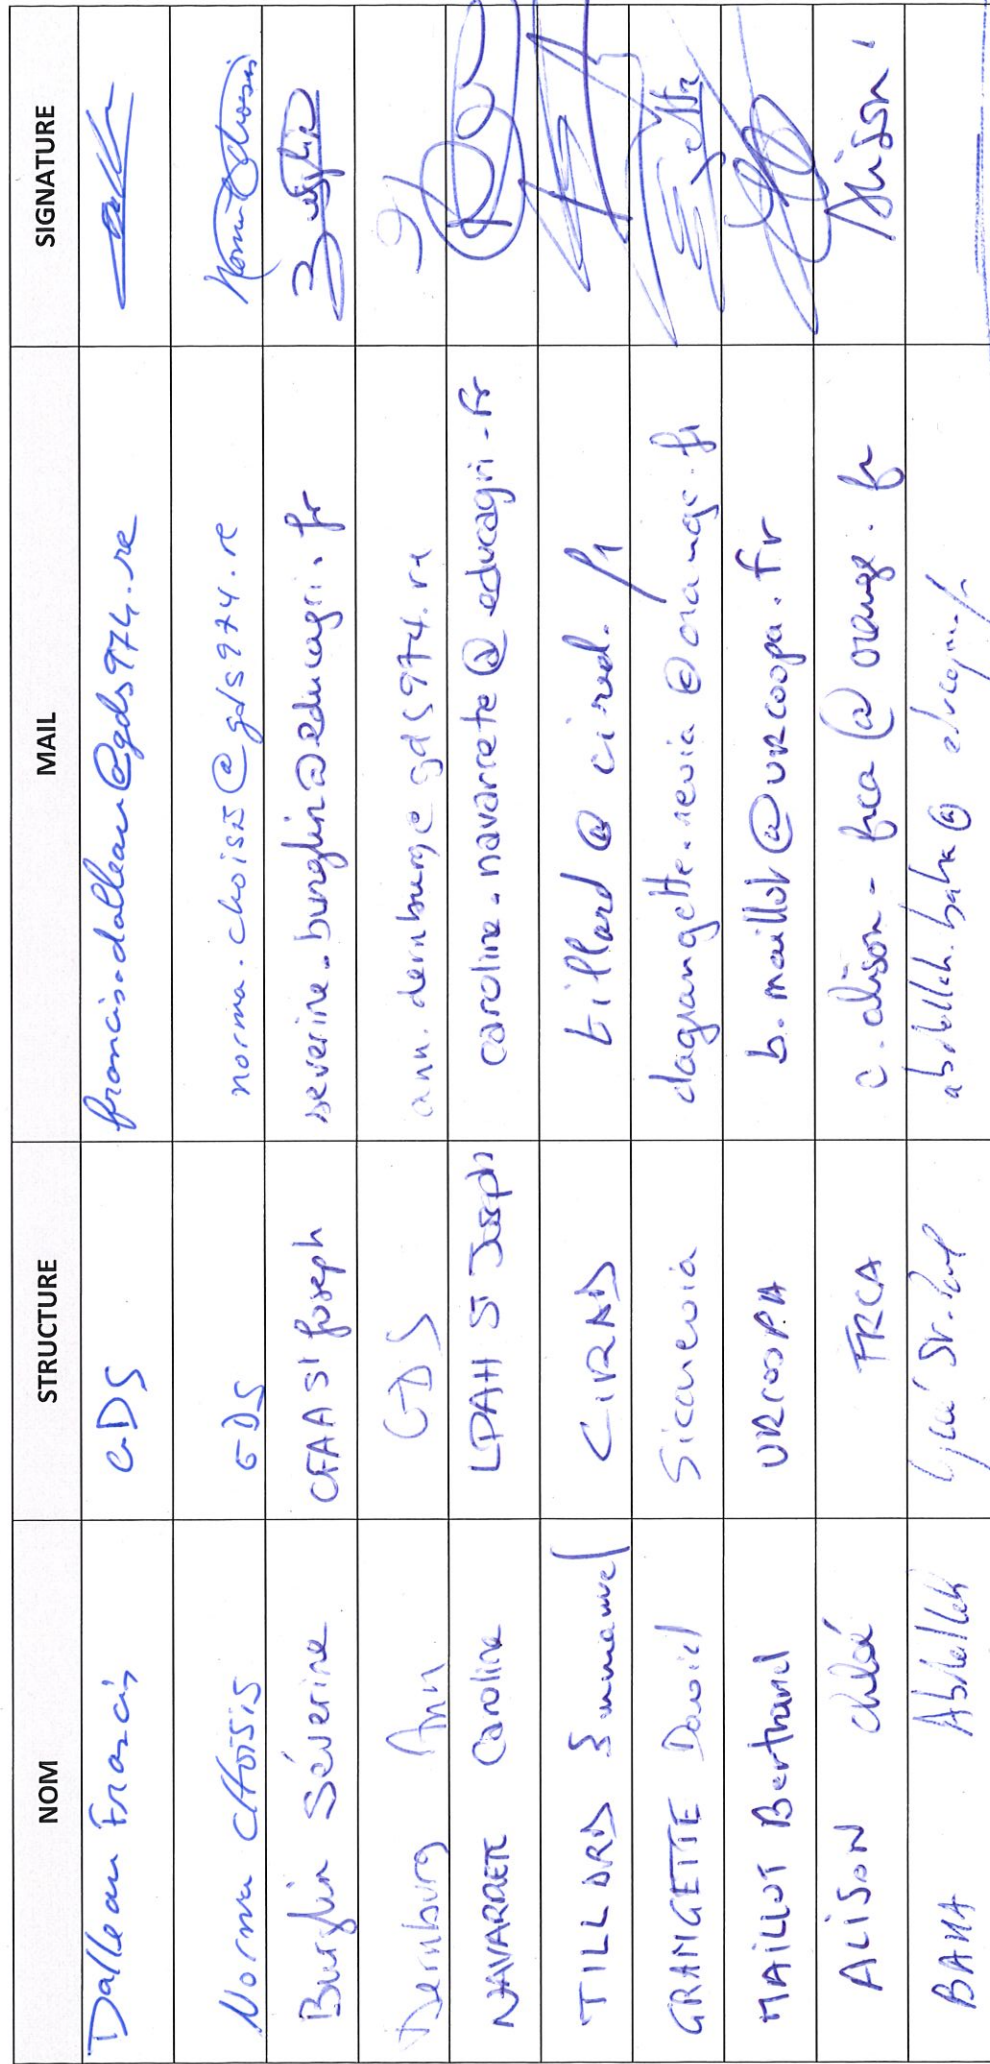 NOM STRUCTURE MAIL SIGNATURE
Dalleau Francis GDS francis.dalleau@gds974.re
Norma CHOISIS GDS norma.choisis@gds974.re
Burglin Séverine CFAA St Joseph severine.burglin@educagri.fr Burglin
Dernburg Ann GDS ann.dernburg@gds974.re
NAVARRETE Caroline LPAH St Joseph caroline.navarrete@educagri.fr
TILLARD Emmanuel CIRAD tillard@cirad.fr
GRANGETTE David Sicarevia dagrangette.revia@orange.fr
MAILLOT Bertrand URCOOPA b.maillot@urcoopa.fr
ALISON Chloé FRCA c.alison-frca@orange.fr Alison
Abdellah Lycée St. Paul